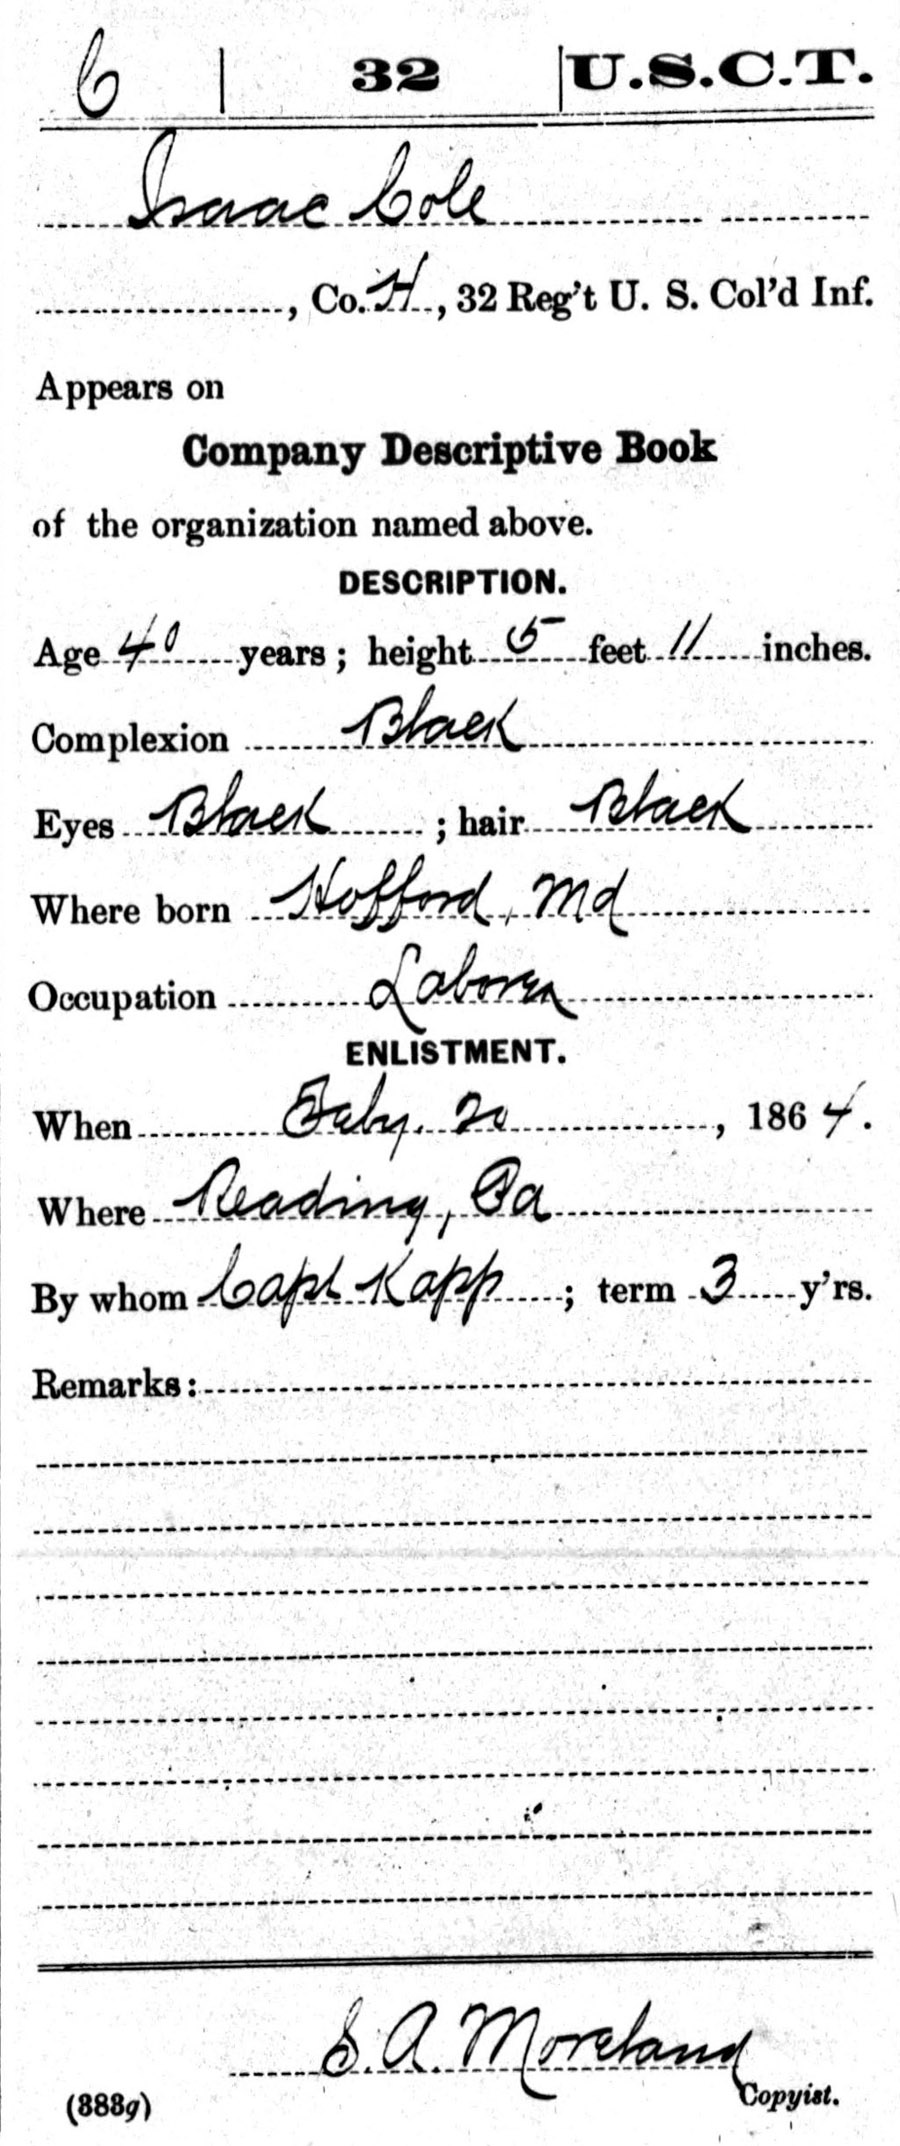 C | 32 | U.S.C.T.
Isaac Cole
, Co. H, 32 Reg't U. S. Col'd Inf.
Appears on
Company Descriptive Book
of the organization named above.
DESCRIPTION.
Age 40 years; height 5 feet 11 inches.
Complexion Black
Eyes Black; hair Black
Where born Hofford, Md
Occupation Laborer
ENLISTMENT.
When Feby. 20, 1864.
Where Reading, Pa
By whom Capt Kapp; term 3 y'rs.
Remarks:
S. A. Moreland
Copyist.
(383g)